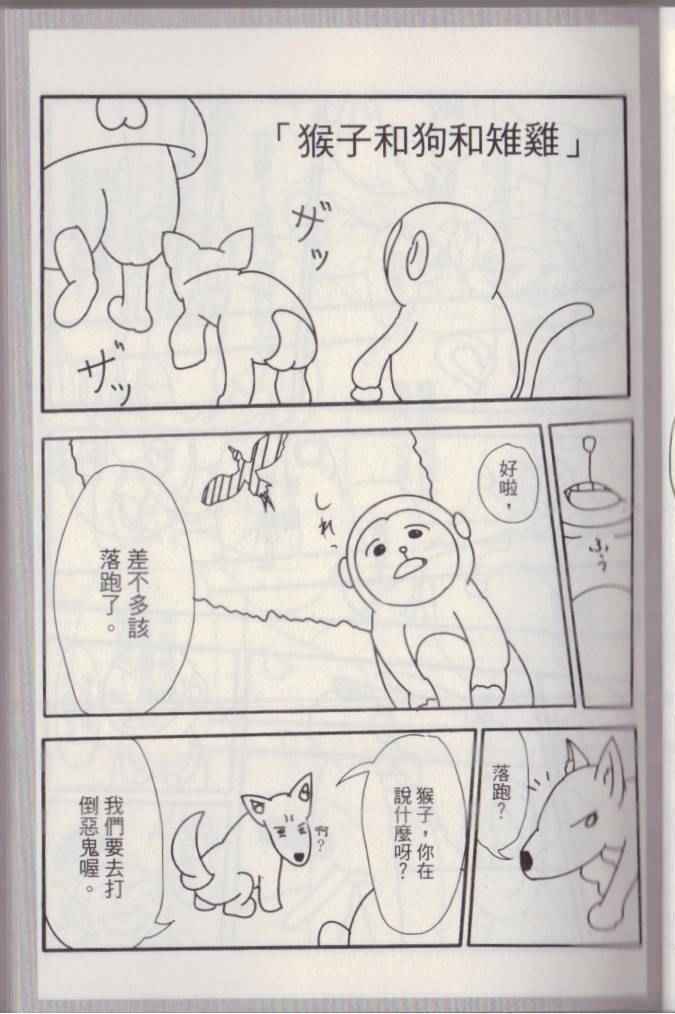 「猴子和狗和雉雞」
ザッ
ザッ
ふぅ
好啦，
しれっ
差不多該
落跑了。
落跑？
猴子，你在
說什麼呀？
啊？
我們要去打
倒惡鬼喔。